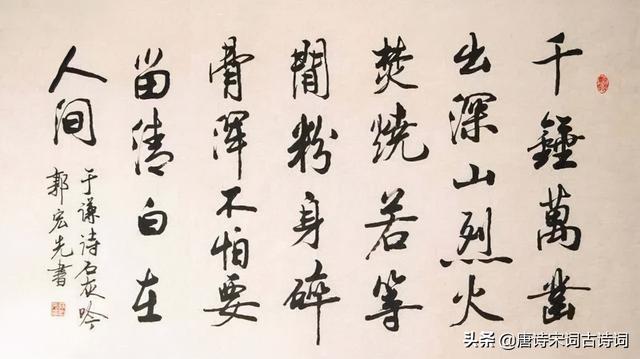 千鍾萬凿
出深山烈火
焚燒若等
閒粉身碎
骨渾不怕要
留清白在
人间
于谦诗石灰吟
郭宏先書
头条@唐诗宋词古诗词